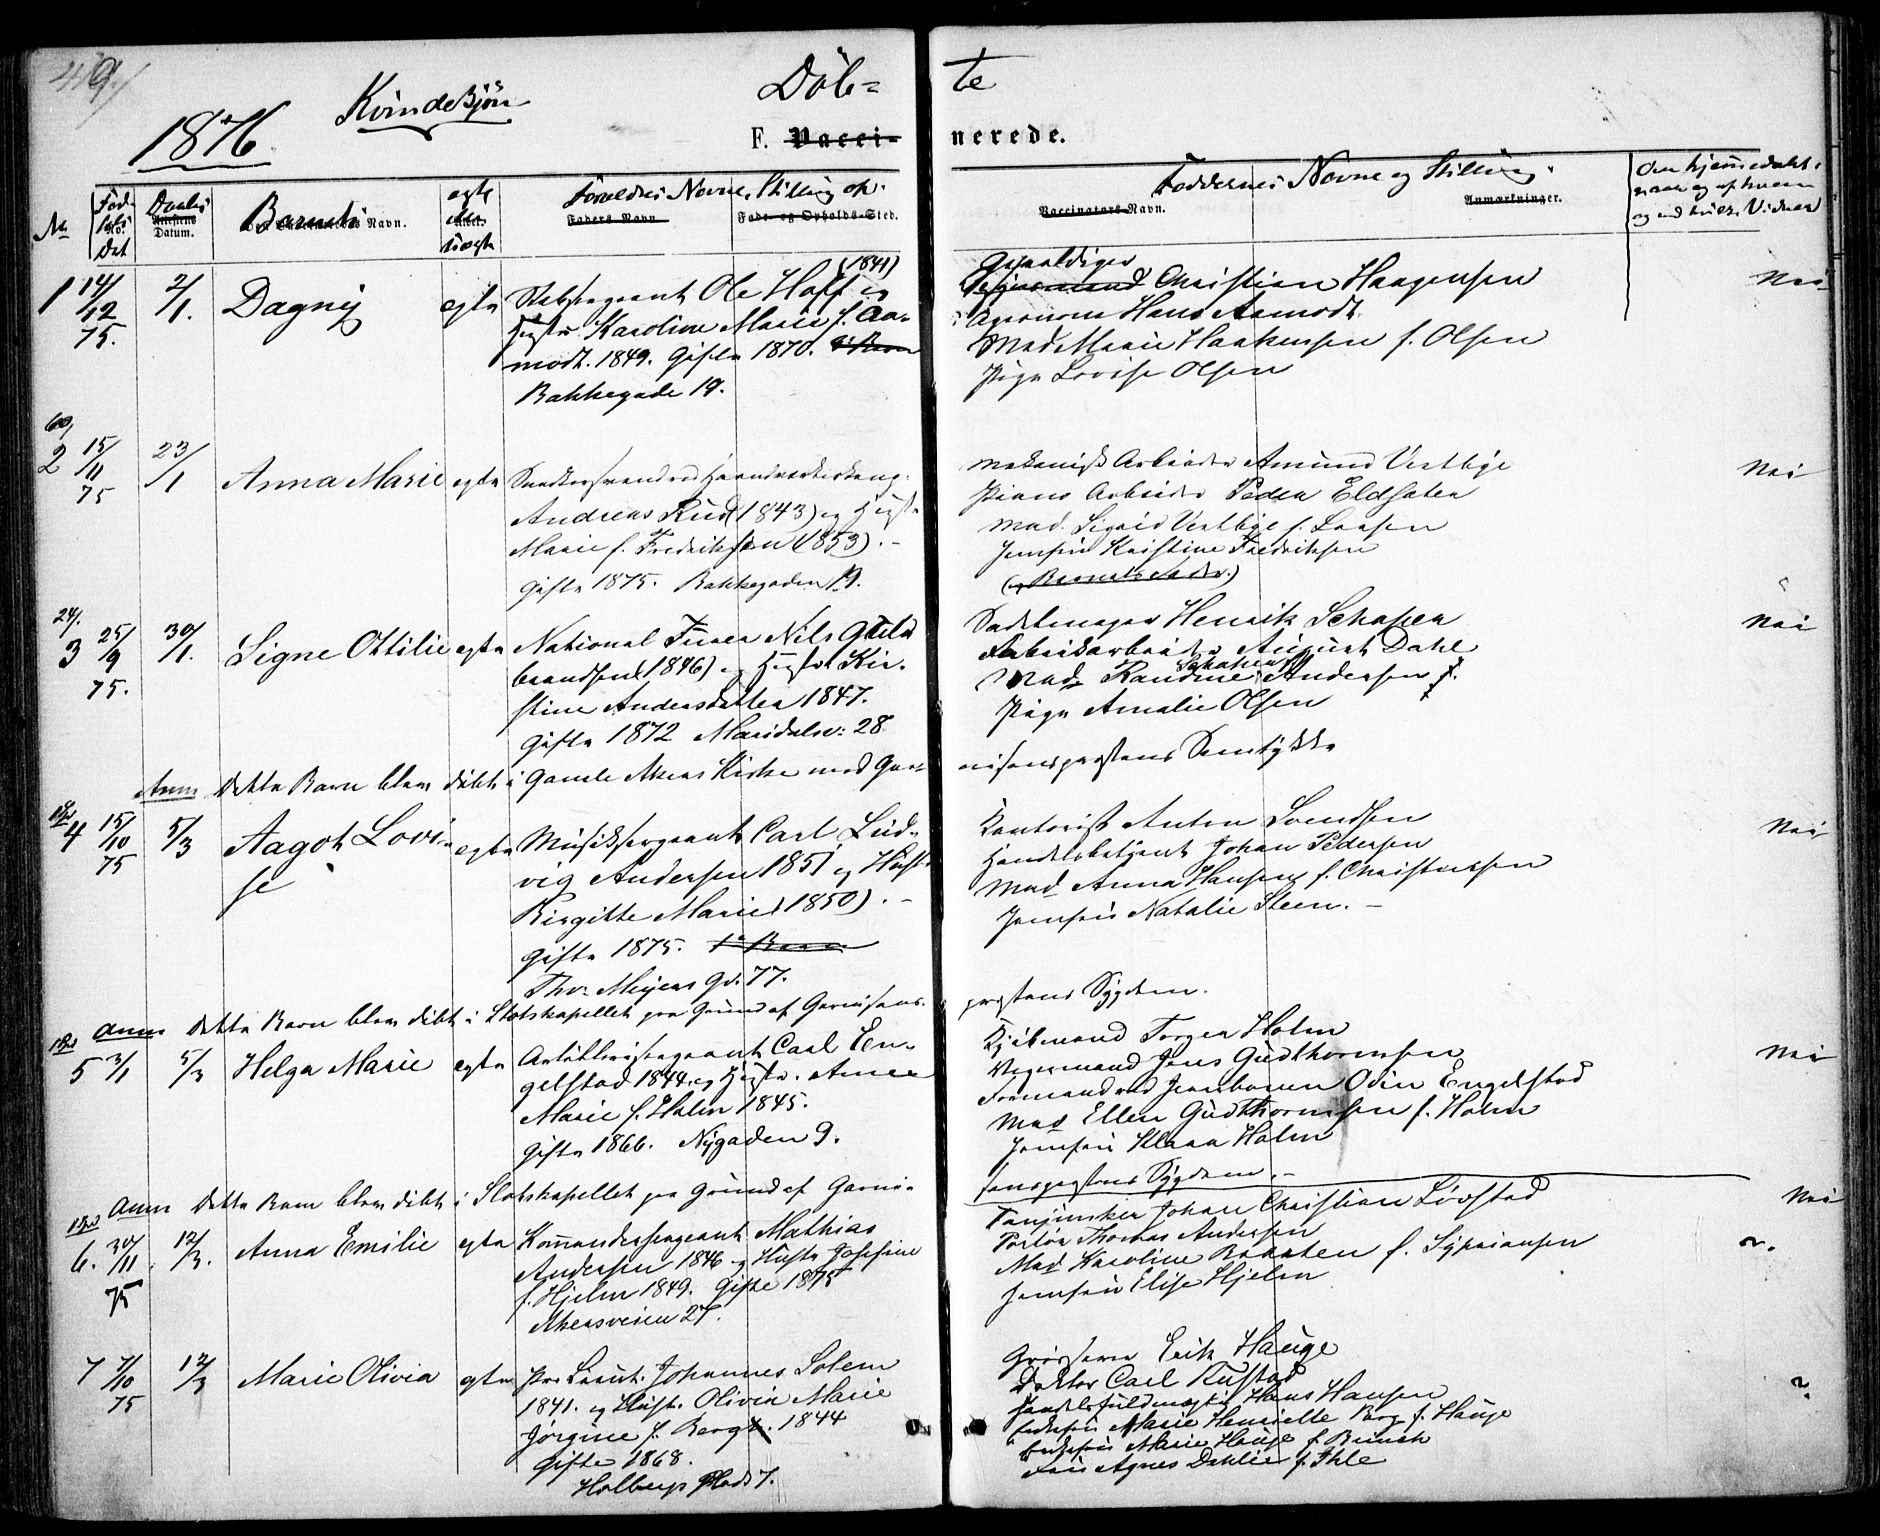 49
1876
Kvindekjøn
Døb-
te
F. Vacci-
nerede.
No
Fød-
sels
Det
Daabs
Datum.
Barnets Navn.
egte
eller
uegte
Forældres Navne, Stilling
Faders Navn
Føde- og Opholds-Sted.
Faddernes Navne og Stilling.
Vaccinators Navn.
Anmærkninger.
Om hjemmedøbt,
og af hvem
og Vidner
1 14/12 75. 2/1. Dagny egte Stabssergeant Ole Hoff (1841) og
Hustr. Karoline Marie f. Aa-
modt. 1849. Gifte 1870. 1ste Barn
Bakkegade 19.
Gevaldiger
Christian Haagensen
Agronom Hans Aamodt
Mad Marie Haakensen f. Olsen
Pige Lovise Olsen
Nei
2 15/11 75 23/1 Anna Marie egte
Andreas Rud (1843) og Hustr.
Marie f. Fredriksen (1853).
Gifte 1875. Bakkegaden 19.
Mekanisk Arbeider Amund Vestbye
Piano Arbeider Peder Eldsaten
Mad. Sigrid Vestbye f. Larsen
Jomfru Kristine Fredriksen
(og Barnets Fader.)
Nei
24/.
3 25/9 75. 30/1. Signe Ottilie egte National Furer Nils Guld
brandsen (1846) og Hustr. Kir-
stine Andersdatter 1847.
Gifte 1872 Maridalsv: 28
Sadelmager Henrik Schaper
Fabrikarbeider August Dahl
Mad. Randine Schaper f. Andersen
Pige Amalie Olsen
Nei
Anm Dette Barn blev døbt i Gamle Akers Kirke med Gar-
nisonsprestens Samtykke
4 15/10 75 5/3 Aagot Lovi-
se
egte Musiksergeant Carl Lud-
vig Andersen 1851 og Hustr
Birgitte Marie (1850).
Gifte 1875. 1e Barn
Thv. Meyers Gd. 77.
Kontorist Anton Svendsen
Handelsbetjent Johan Pedersen
Mad Anna Hansen f. Christensen
Jomfru Natalie Steen.
Nei
Anm Dette Barn blev døbt i Slotskapellet pra Grund af Garnisons-
prestens Sygdom.
5 3/1 5/3 Helga Marie egte Artillerisergeant Carl En-
gelstad 1844 og Hustr. Anne
Marie f. Holm 1845.
Gifte 1866. Nygaden 9.
Kjøbmand Torger Holm
Vognmand Jens Gudthormsen
Formand ved Jernbanen Odin Engelstad
Mad Ellen Gudthormsen f. Holm
Jomfru Klara Holm
Nei
Anm Dette Barn blev døbt i Slotskapellet pra Grund af Garni-
sonsprestens Sygdom.
6. 30/11 75 12/3. Anna Emilie egte Komandersergeant Mathias
Andersen 1846 og Hustr Josefine
f. Hjelm 1849. Gifte 1875
Akersveien 27.
Tanjunker Johan Christian Løvstad
Portør Thomas Andersen
Mad Karoline Braaten f. Sypriansen
Jomfru Elise Hjelm
Nei
7 7/10 75 12/3 Marie Olivia egte Pr. Lieut. Johannes Solem
1841. og Hustr. Olivia Marie
Jørgine f. Berg. 1844
Gifte 1868.
Holbergs Plads 7.
Grosserer Erik Hauge
Doktor Carl Rustad
Handelsfuldmægtig Hans Hansen
Enkefru Marie Henriette Berg f. Hauge
Enkefru Marie Hauge f. Bunch
Fru Agnes Dehlie f. Ihle